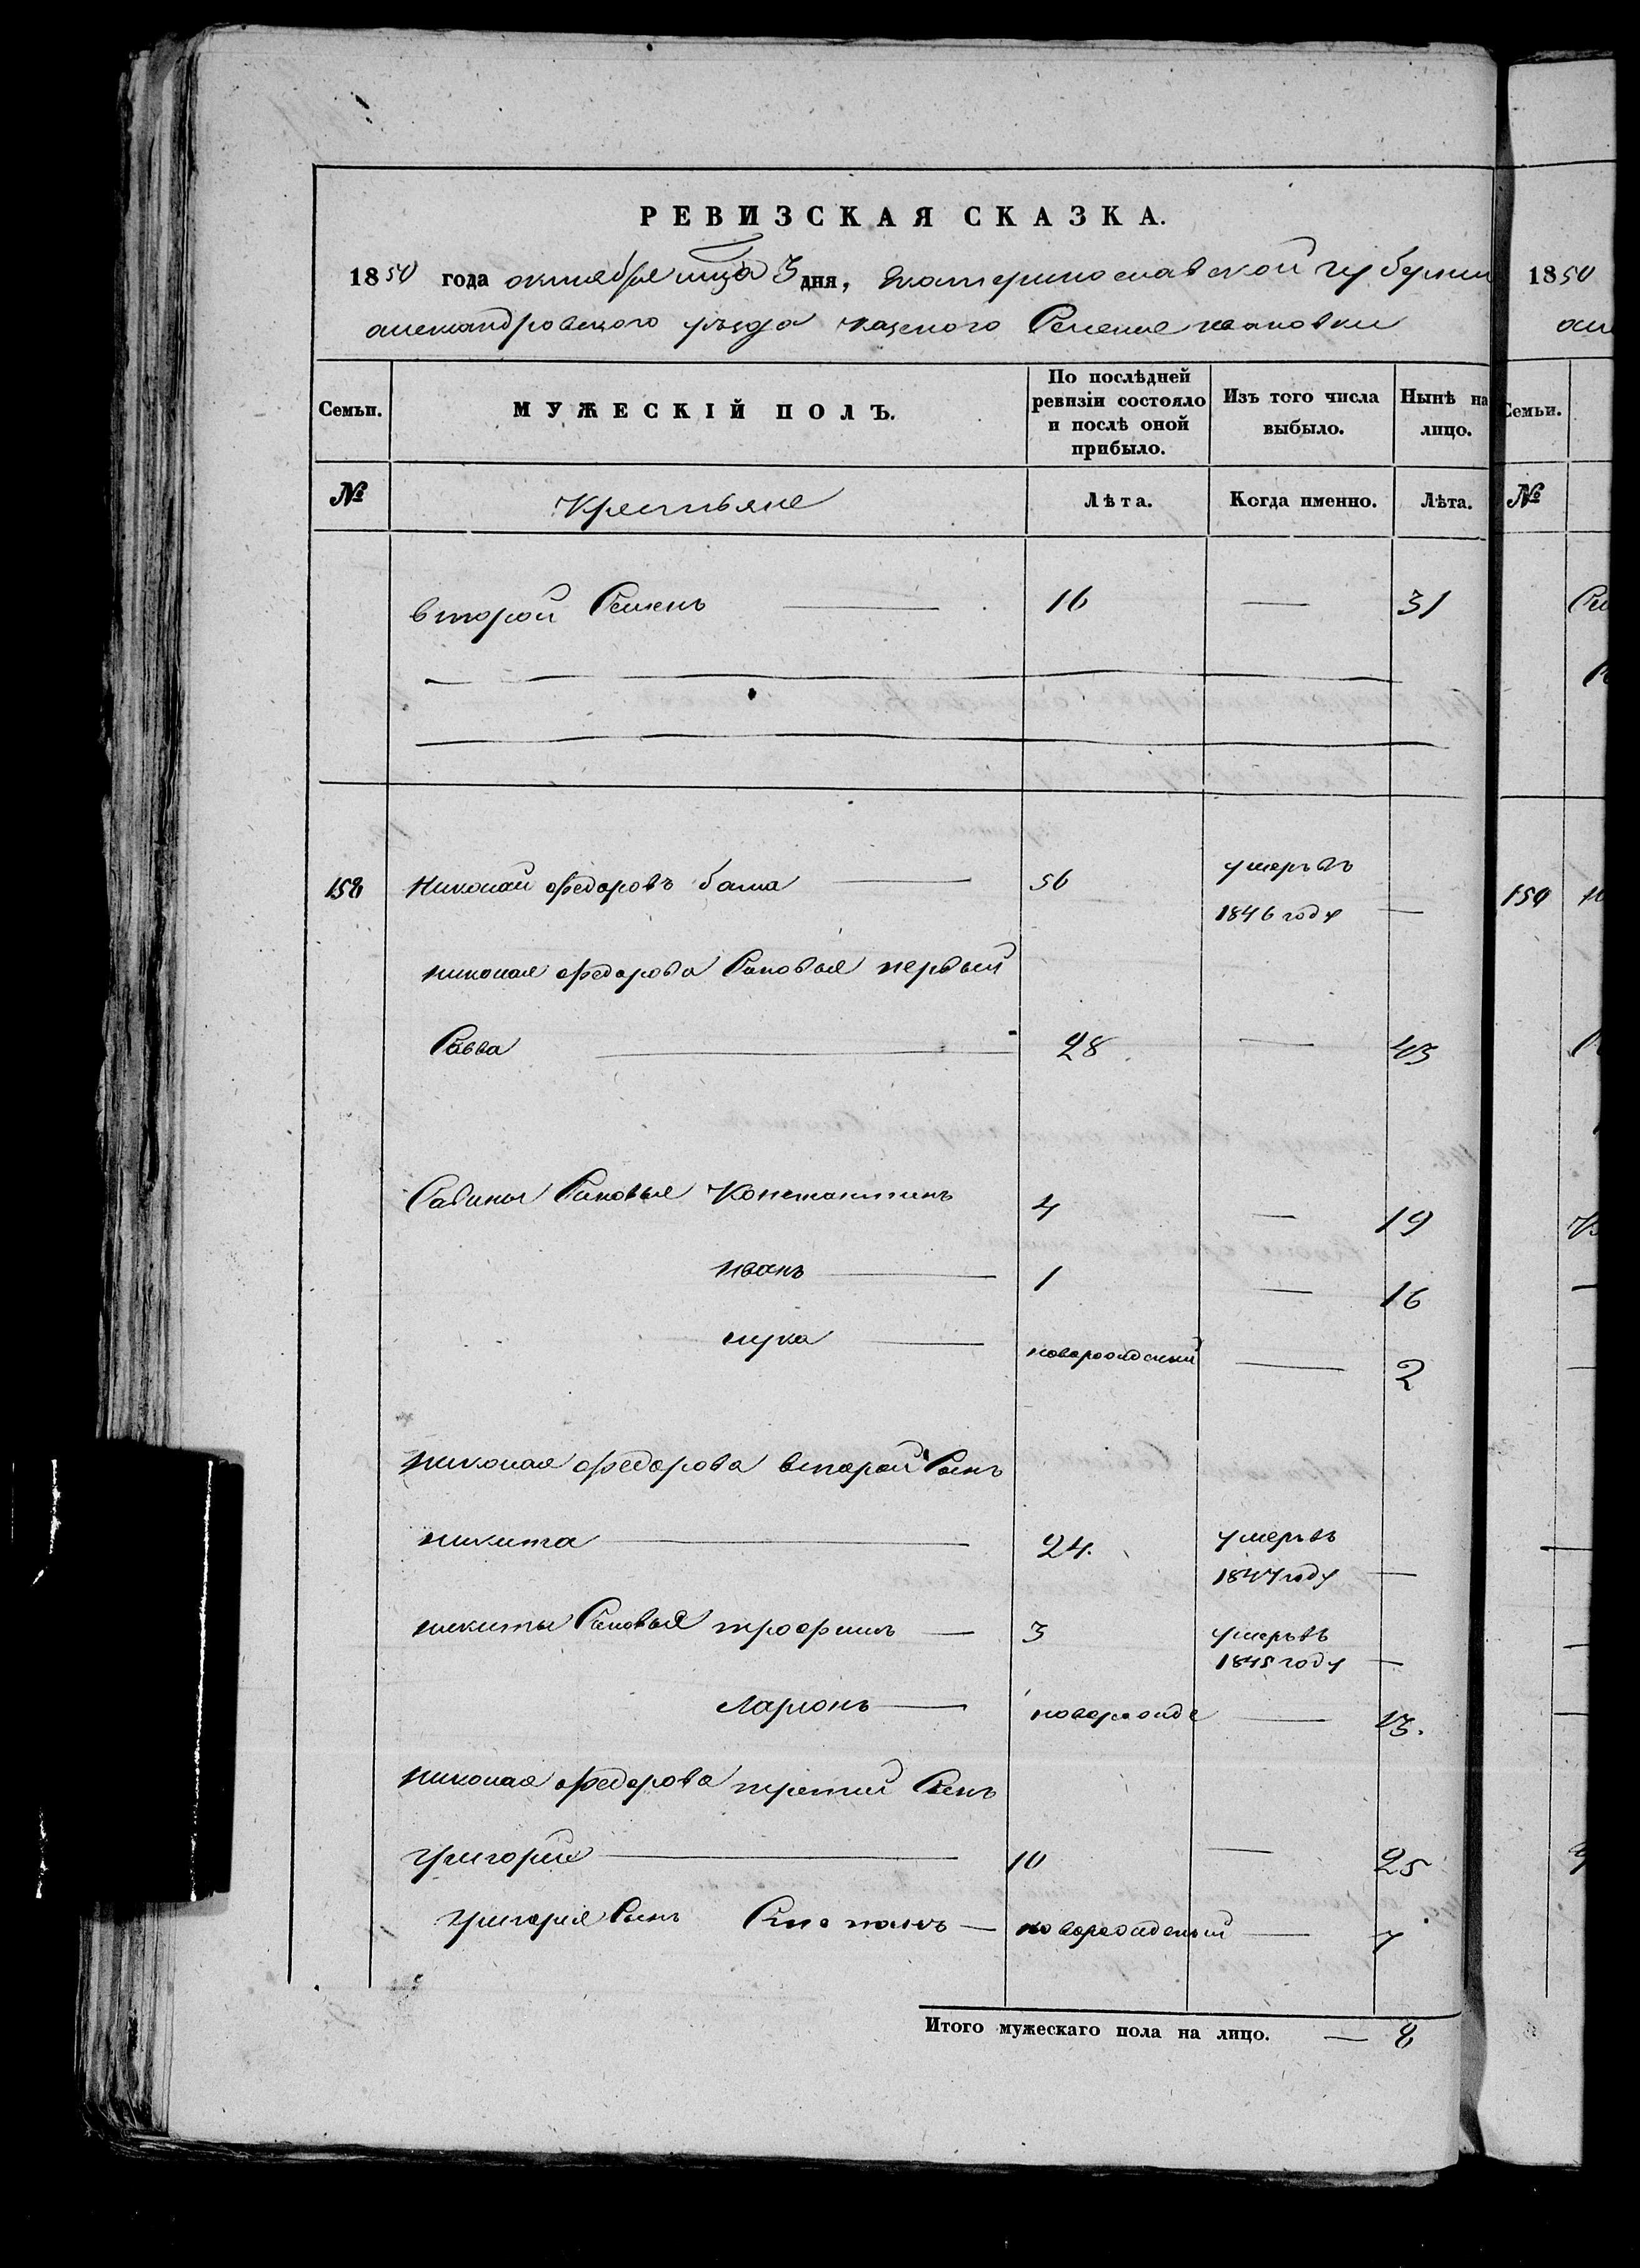 РЕВИЗСКАЯ СКАЗКА.
1850 года октября мца 3 дня, Екатеринославской губернии
александровского уезда казеного Селения ивановки
Семьи.
МУЖЕСКІЙ ПОЛЪ.
По послѣдней ревизіи состояло и послѣ оной прибыло.
Изъ того числа выбыло.
Нынѣ на лицо.
№
Крестьяне
Лѣта.
Когда именно.
Лѣта.
второй Семенъ — 16 — 31
158 Николай Федоровъ баша — 56 умеръ въ
1846 году —
николая Федорова Сыновья первый
Савва — 28 — 43
Савины Сыновья Константинъ 4 — 19
иванъ — 1 — 16
лука — новорожденый — 2
николая Федорова второй Сынъ
никита — 24. умеръ въ
1847 году —
никиты Сыновья трофимъ — 3 умеръ въ
1845 году —
Ларионъ — новорожде — 13.
николая Федорова третий Сынъ
григорий — 10 — 25
григория Сынъ Степанъ — новорожденый — 7
Итого мужескаго пола на лицо. — 8
1850
Семьи.
№
159